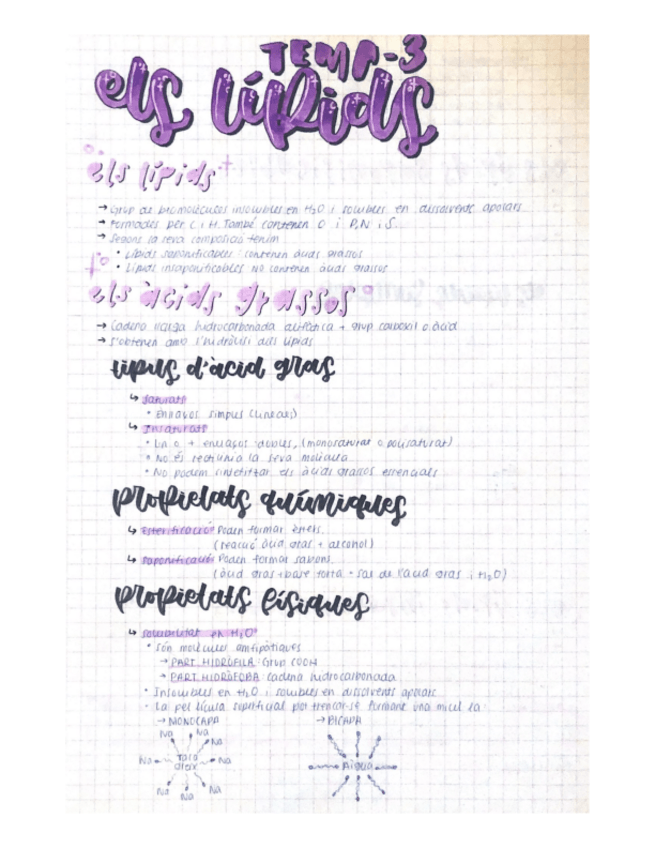 TEMA-3
els lípids
els lípids
→ Grup de biomolècules insolubles en H₂O i solubles en dissolvents apolars
→ Formades per C i H. També contenen O i P, N i S.
→ Segons la seva composició tenim
• Lípids saponificables: contenen àcids grassos
• Lípids insaponificables NO contenen àcids grassos
els àcids grassos
→ Cadena llarga hidrocarbonada alifàtica + grup carboxil o àcid
→ S'obtenen amb l'hidròlisi dels lípids
tipus d'àcid gras
↳ Saturats
• Enllaços simples (lineals)
↳ Insaturats
• Un o + enllaços dobles, (monosaturat o polisaturat)
• No és rectilínia la seva molècula
• No podem sintetitzar els àcids grassos essencials
propietats químiques
↳ Esterificació: Poden formar èsters
(reacció àcid gras + alcohol)
↳ Saponificació: Poden formar sabons
(àcid gras + base forta - Sal de l'àcid gras i H₂O)
propietats físiques
↳ Solubilitat en H₂O
• Són molècules amfipàtiques
→ PART HIDRÒFILA: Grup COOH
→ PART HIDRÒFOBA: cadena hidrocarbonada
• Insolubles en H₂O i solubles en dissolvents apolars
• La pel·lícula superficial pot trencar-se formant una micel·la
→ MONOCAPA → BICAPA
Na Na Na
Na Na
Na Na Na
Aigua